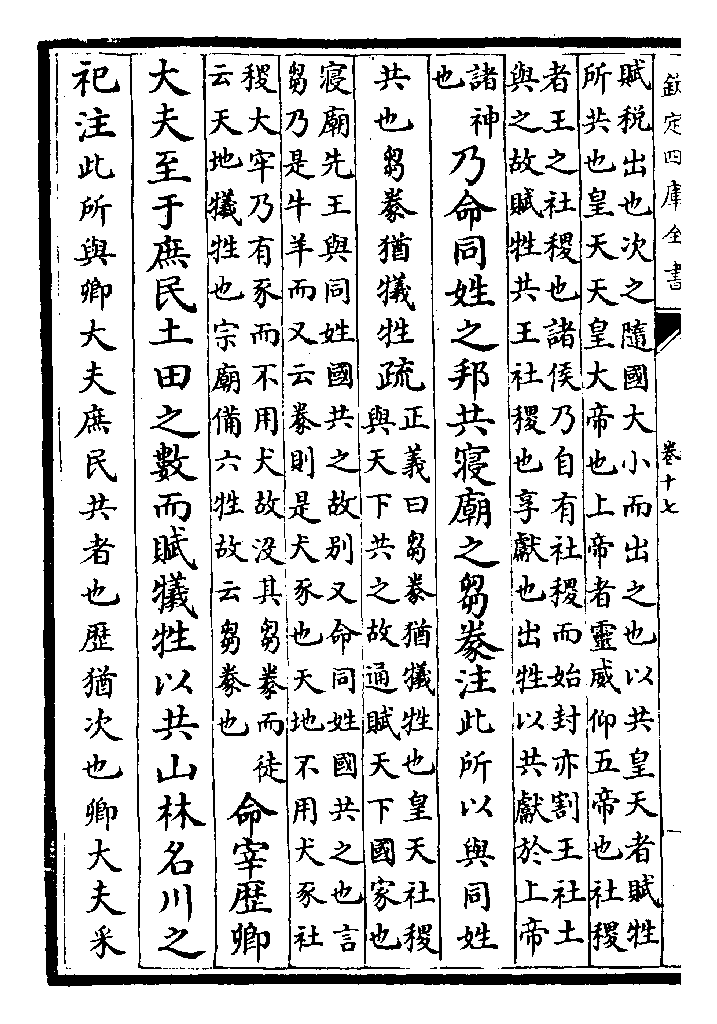 欽定四庫全書 卷十七
賦税出也次之隨國大小而出之也以共皇天者賦牲
所共也皇天天皇大帝也上帝者靈威仰五帝也社稷
者王之社稷也諸侯乃自有社稷而始封亦割王社土
與之故賦牲共王社稷也享獻也出牲以共獻於上帝
諸神
也
乃命同姓之邦共寢廟之芻豢注此所以與同姓
共也芻豢猶犧牲疏
正義曰芻豢猶犧牲也皇天社稷
與天下共之故通賦天下國家也
寢廟先王與同姓國共之故别又命同姓國共之也言
芻乃是牛羊而又云豢則是犬豕也天地不用犬豕社
稷大牢乃有豕而不用犬故没其芻豢而徒
云天地犧牲也宗廟備六牲故云芻豢也
命宰歴卿
大夫至于庶民土田之數而賦犧牲以共山林名川之
祀注此所與卿大夫庶民共者也歴猶次也卿大夫采